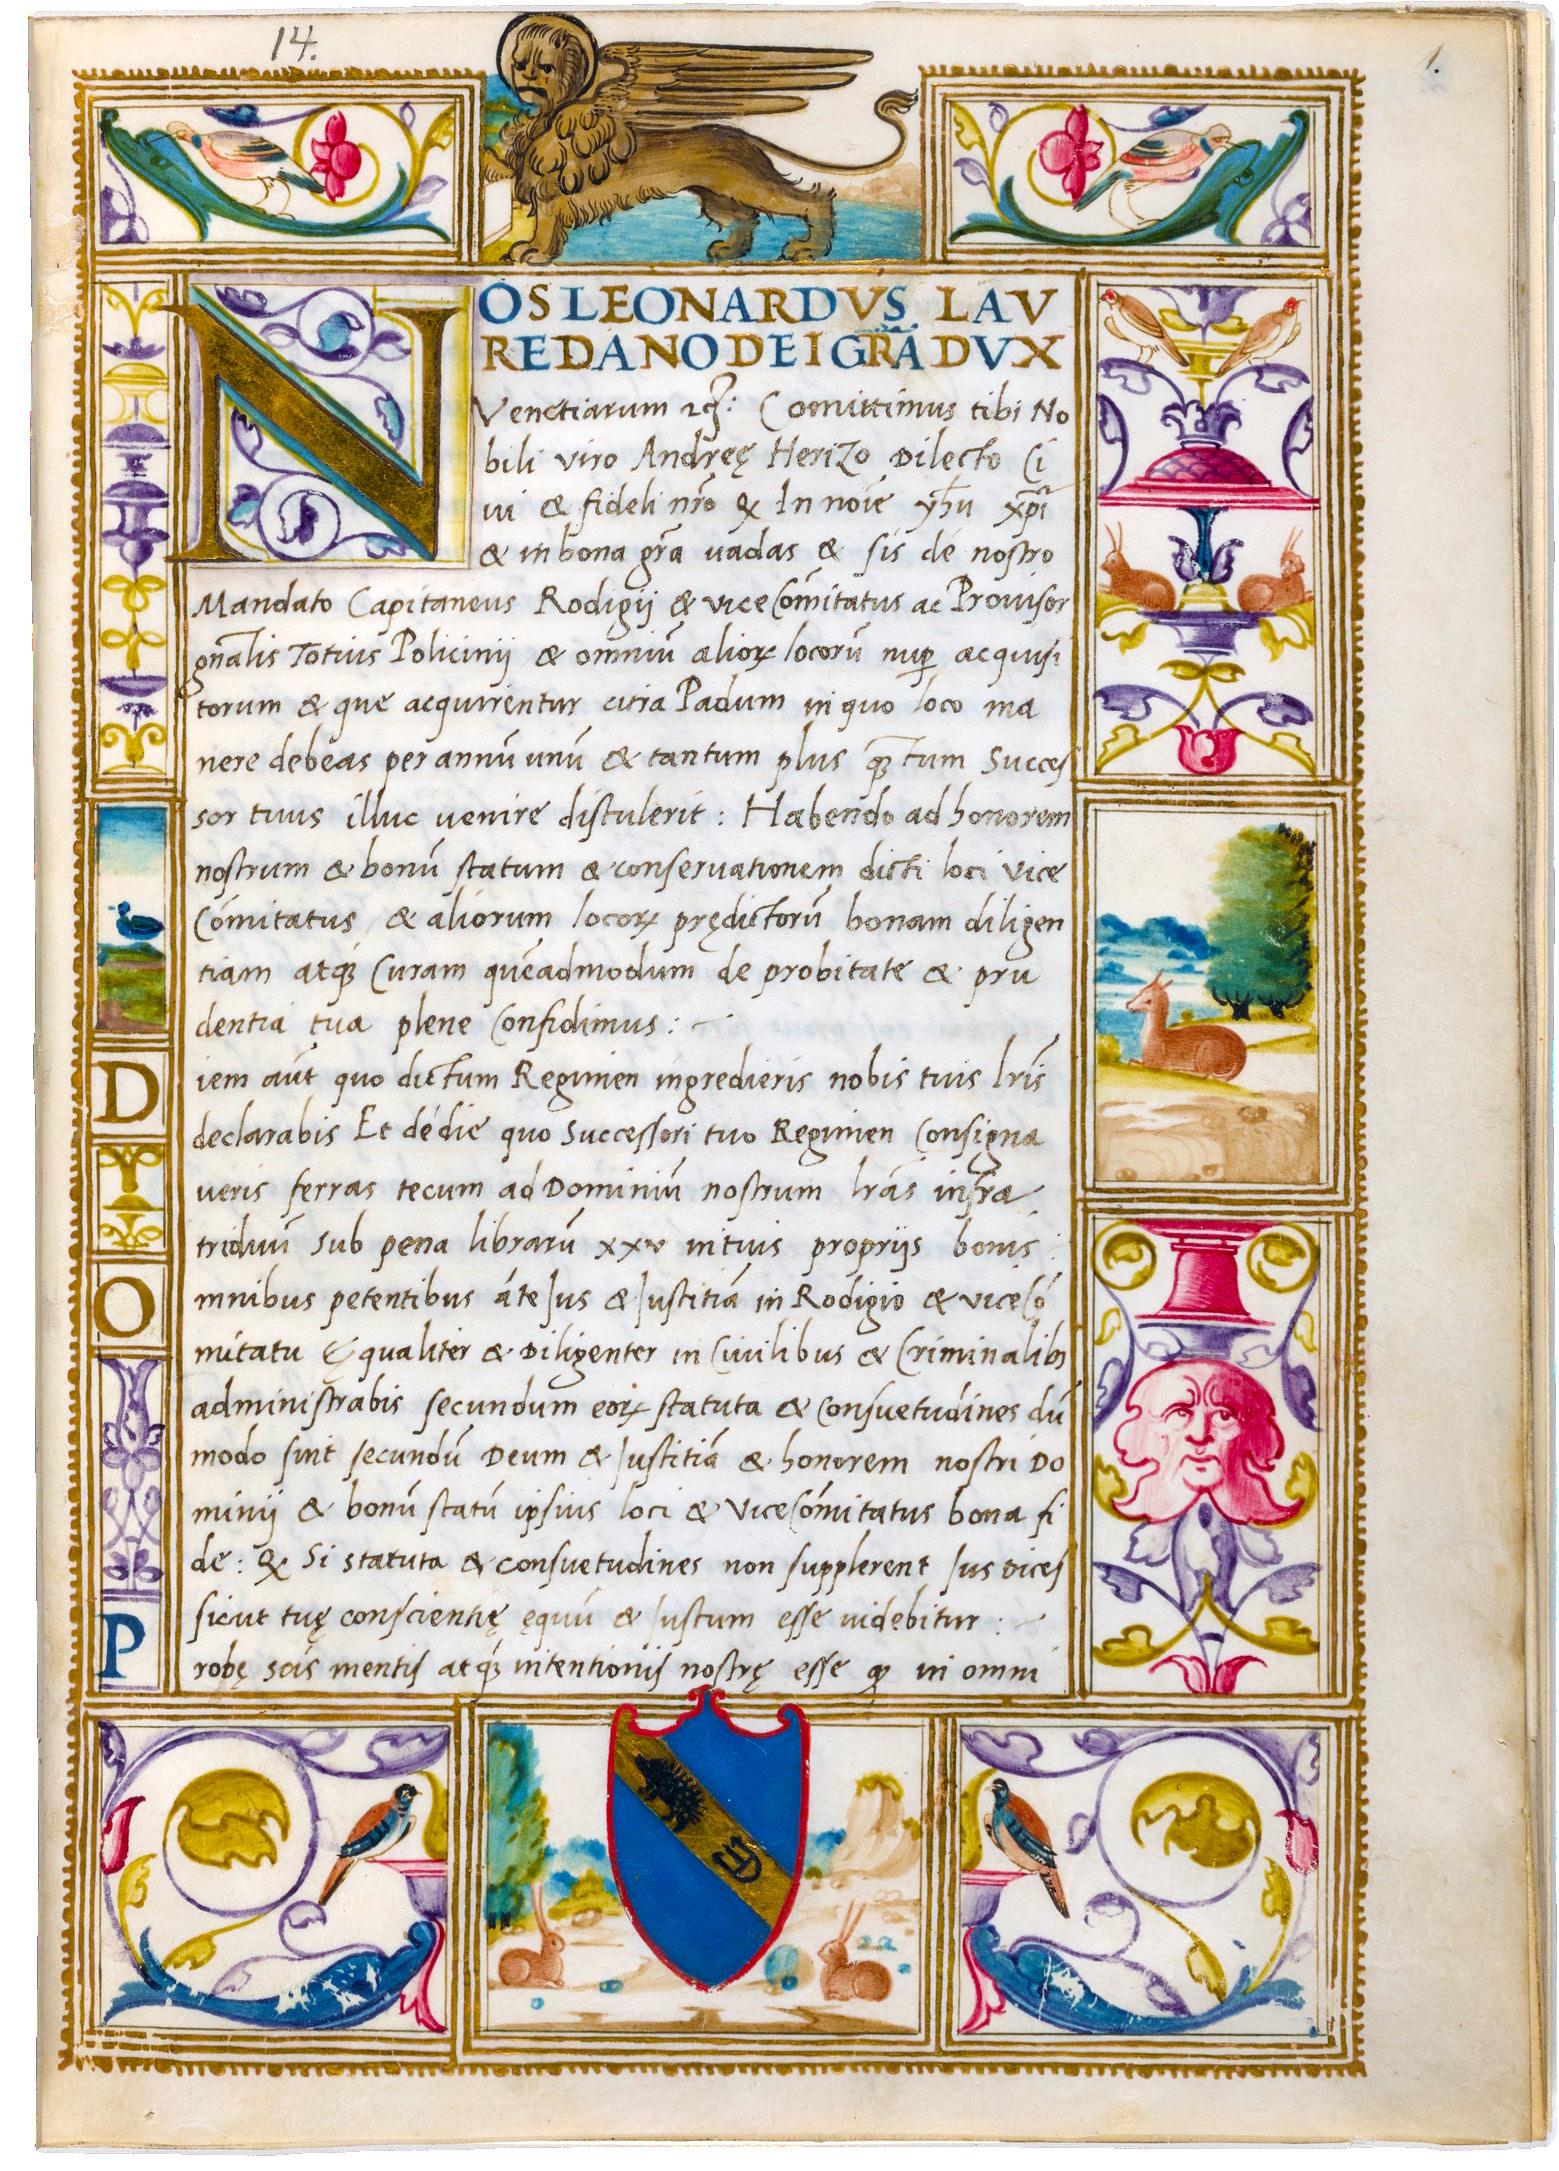 14.
1.
NOS LEONARDVS LAV
REDANO DEI GRĀ DVX
Venetiarum Comittimus tibi No
bili viro Andreę Herizo Dilecto Ci
ui & fideli nr̄o In noīe yh̄u xp̄i
& in bona gr̄a uadas & sis de nostro
Mandato Capitaneus Rodigij & vice Comītatus ac Prouisor
gn̄alis Totius Policinij & omniū alioꝝ locorū nuꝑ acquisi
torum & que acquirentur citra Padum in quo loco ma
nere debeas per annū unū & tantum plus tum Succes
sor tuus illuc uenire distulerit : Habendo ad honorem
nostrum & bonū statum & conseruationem dicti loci vice
Cōmitatus & aliorum locoꝝ prędictorū bonam diligen
tiam atq; Curam quēadmodum de probitate & pru
dentia tua plene Confidimus :
D iem aūt quo dictum Regimen ingredieris nobis tuis lr̄is
declarabis Et de die quo Successori tuo Regimen Consigna
ueris ferras tecum ad Dominiū nostrum lr̄as infra
triduū sub pena librarū xxv in tuis proprijs bonis :
O mnibus petentibus āte Jus & Justitiā in Rodigio & vice Cō
mitatu Equaliter & Diligenter in Ciuilibus & Criminalibꝫ
administrabis secundum eoꝝ statuta & Consuetudines dū
modo sint secundū Deum & Justitiā & honorem nostri Do
minij & bonū statū ipsius loci & Vice Cōmitatus bona fi
de : Si statuta & consuetudines non supplerent Jus Dices
sicut tuę conscientię ęquū & Justum esse uidebitur :
P robę scis mentis atq; intentionis nostrę esse in omni